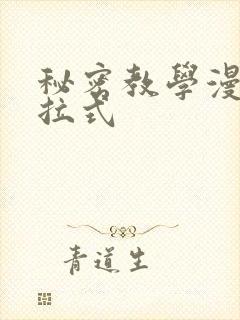 秘密教學漫
拉式
青道生